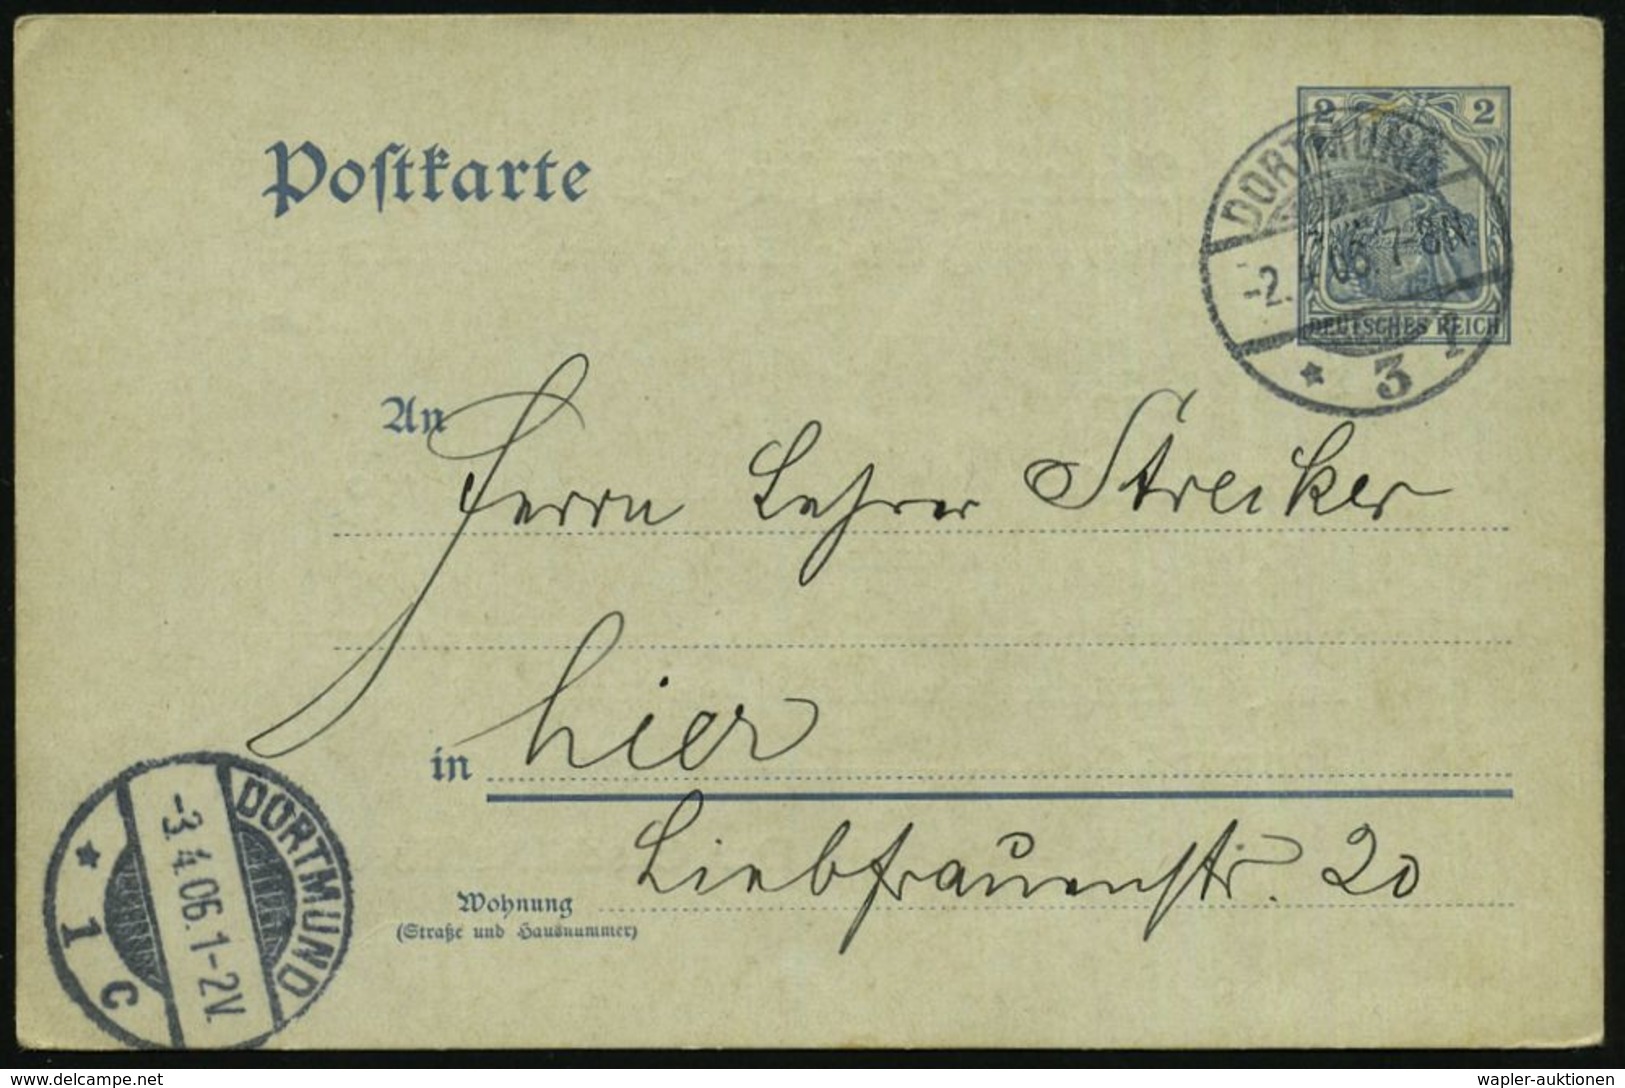 2 2
Postkarte
DORTMUND
-2.4.06.7-8N
DEUTSCHES REICH
* 3
An Herrn Lehrer Streiker
in hier
Liebfrauenstr. 20
Wohnung
(Straße und Hausnummer)
DORTMUND
-3.4.06.1-2V.
* 1 c
wapler-auktionen